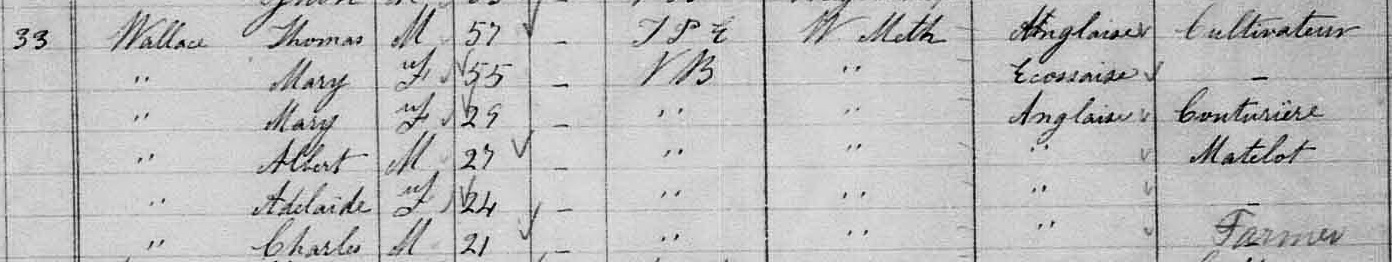 33 Wallace Thomas M 57 – I P E W Meth Anglaise Cultivateur
" Mary F 55 – N B " Ecossaise –
" Mary F 29 – " " Anglaise Couturière
" Albert M 27 – " " " Matelot
" Adelaide F 24 – " " " –
" Charles M 21 – " " " Farmer